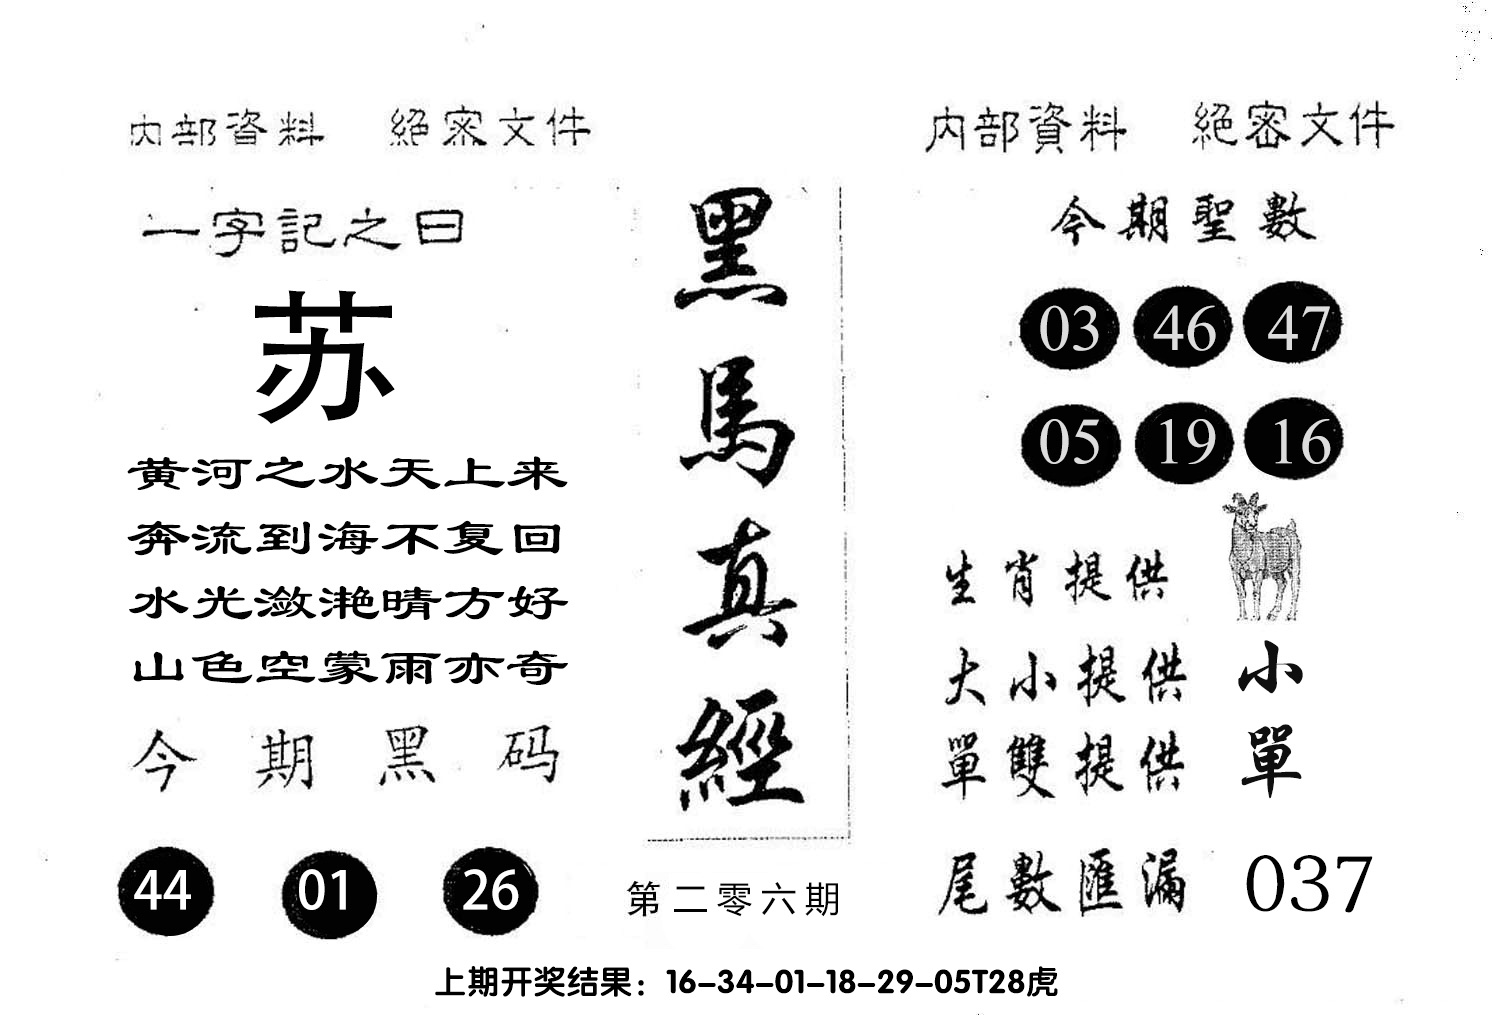 内部資料 絕密文件
一字記之曰
苏
黄河之水天上来
奔流到海不复回
水光潋滟晴方好
山色空蒙雨亦奇
今期黑码
44 01 26
黑馬真經
第二零六期
内部資料 絕密文件
今期聖數
03 46 47
05 19 16
生肖提供
大小提供 小
單雙提供 單
尾數匯漏 037
上期开奖结果：16-34-01-18-29-05T28虎